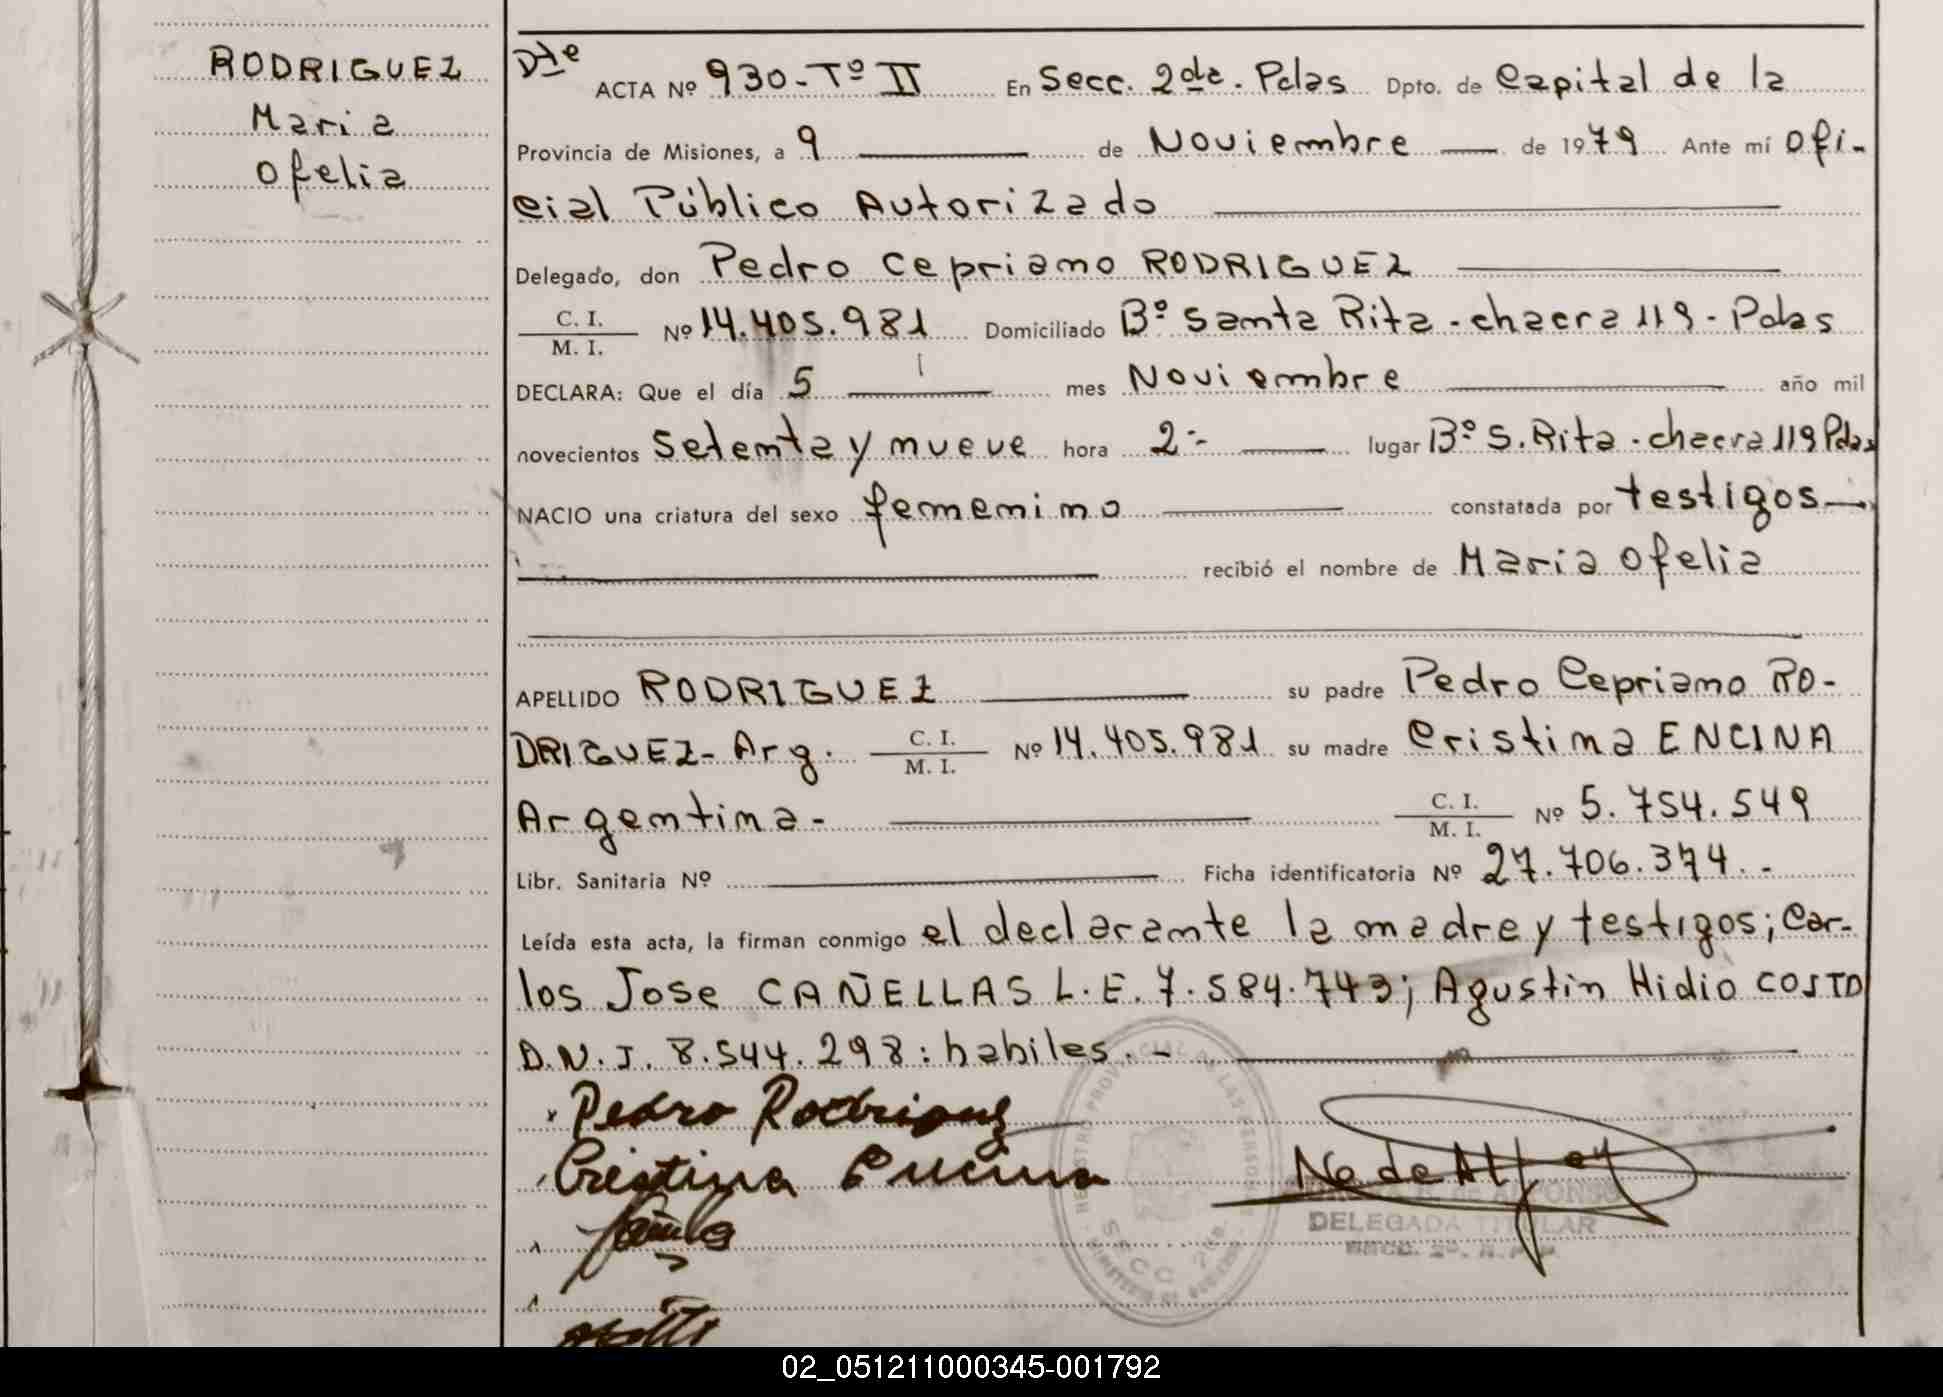 RODRIGUEZ
Maria
Ofelia
Dte
ACTA Nº 930-Tº II En Secc. 2da. Pdas Dpto. de Capital de la
Provincia de Misiones, a 9 de Noviembre de 1979 Ante mí Ofi-
cial Público Autorizado
Delegado, don Pedro Cepriano RODRIGUEZ
C. I.
M. I. Nº 14.405.981 Domiciliado Bº Santa Rita - chacra 119 - Pdas
DECLARA: Que el día 5 mes Noviembre año mil
novecientos Setenta y nueve hora 2 - lugar Bº S. Rita - chacra 119 Pdas
NACIO una criatura del sexo femenino constatada por testigos
recibió el nombre de Maria Ofelia
APELLIDO RODRIGUEZ su padre Pedro Cepriano RO-
DRIGUEZ - Arg. C. I. M. I. Nº 14.405.981 su madre Cristina ENCINA
Argentina - C. I. M. I. Nº 5.754.549
Libr. Sanitaria Nº Ficha identificatoria Nº 27.706.374. -
Leída esta acta, la firman conmigo el declarante la madre y testigos; Car-
los Jose CAÑELLAS L.E. 7.584.743; Agustin Hidio COSTO
D.N.I. 8.544.298: habiles. -
Pedro Rodriguez
Cristina Encina
DE ALFONSO
DELEGADA TITULAR
SECC. 2º. R.P.P.
02_051211000345-001792